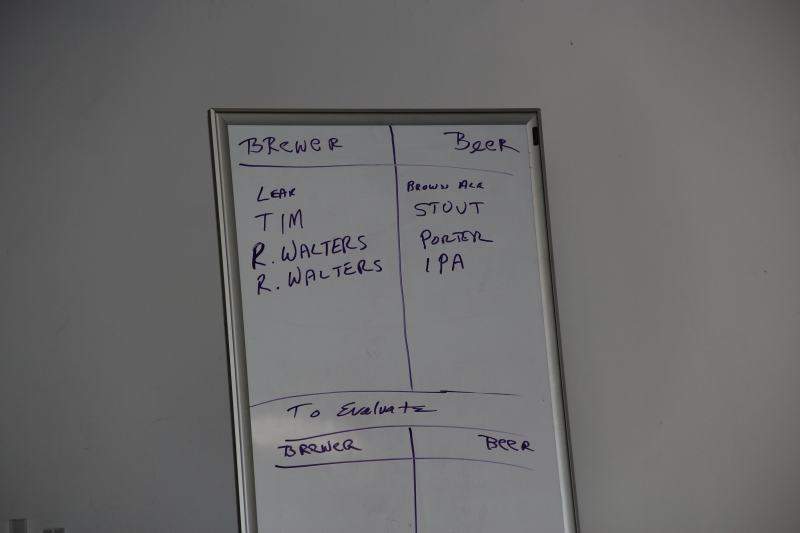 BREWER Beer
LEAR BROWN ALE
TIM STOUT
R. WALTERS PORTER
R. WALTERS IPA
To Evaluate
BREWER BEER